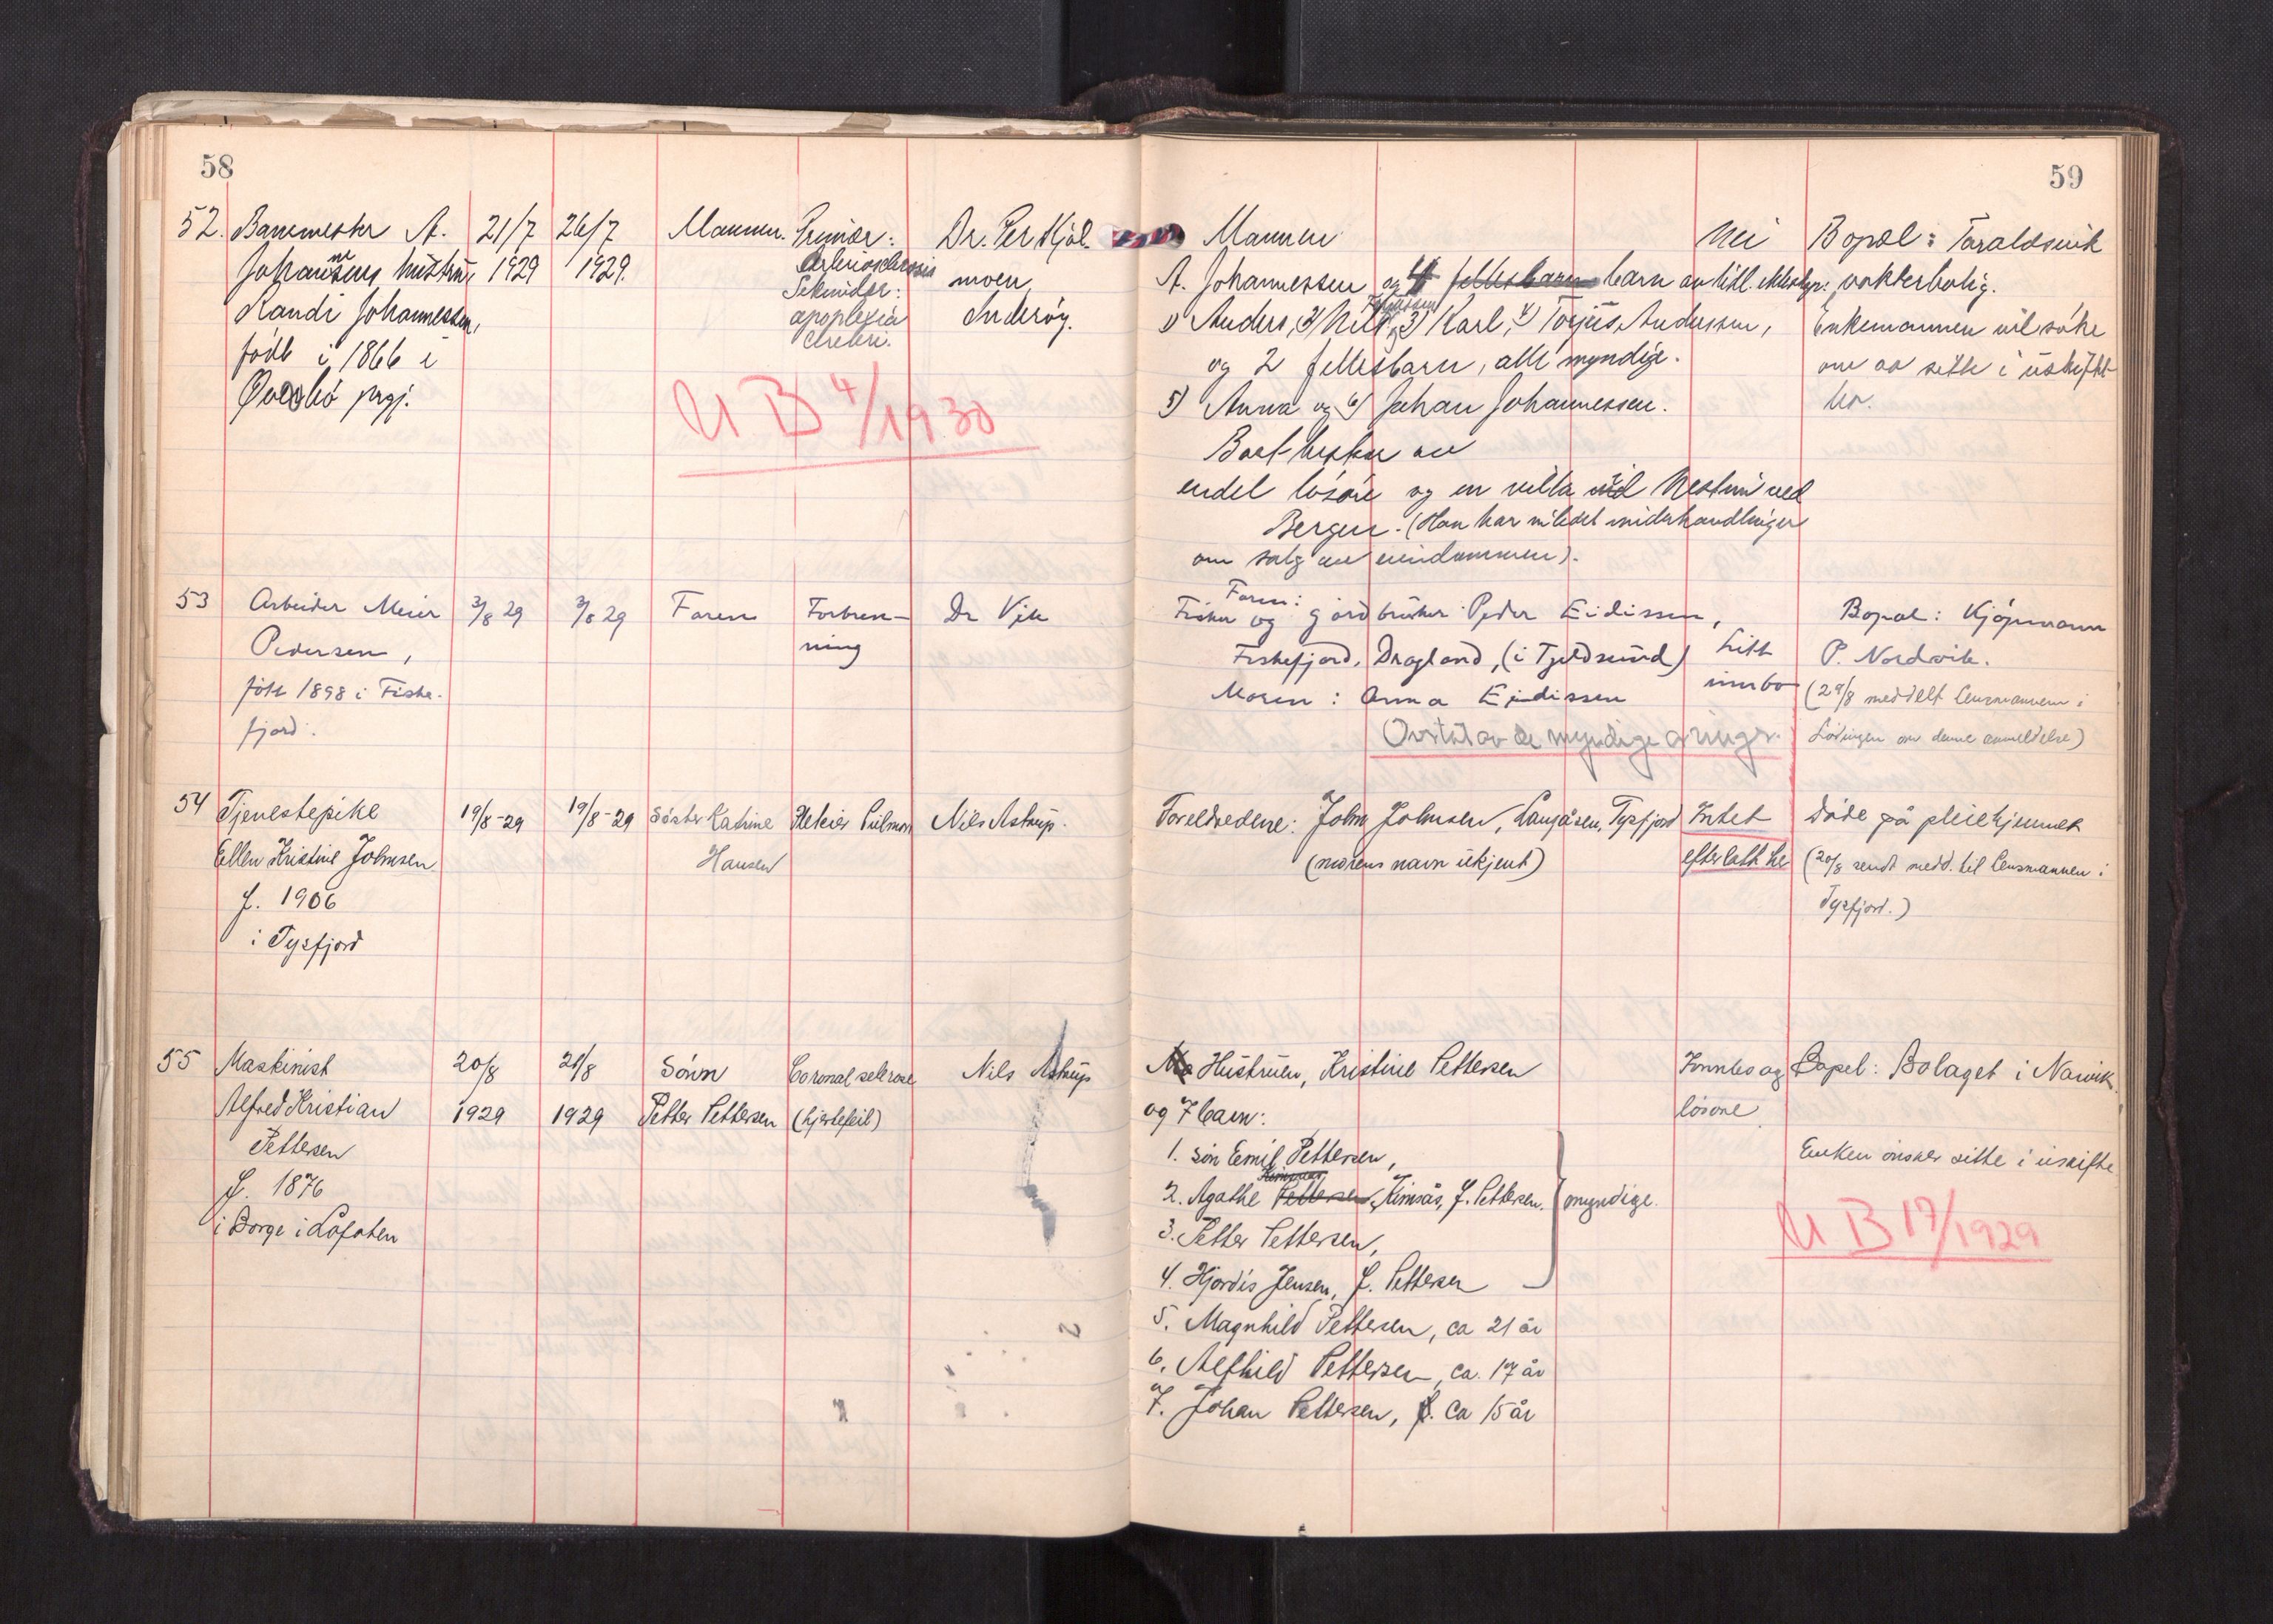 58
52. Banemester A. 21/7 26/7 Mannen. Primær: Dr. Per Kjöl-
Johannsens hustru 1929 1929. Arteriosclerosis moen,
Randi Johannessen, Sekundær: Inderöy.
född i 1866 i apoplexia
cerebri.
prgj.
U B 4/1930
53 Arbeider Meier 3/8 29 3/8 29 Faren Forbren- Dr Vik
Pedersen, ning
föd 1898 i Fiske-
fjord.
54 Tjenestepike 19/8-29 19/8-29 Söster Katrine Nils Astrup.
Ellen Kristine Johnsen Hansen
f. 1906
i Tysfjord
55 Maskinist 20/8 21/8 Sönn Coronal sclerose Nils Astrup
Alfred Kristian 1929 1929 Petter Pettersen (hjertefeil)
Pettersen
f. 1876
i Borge i Lofoten
59
Mannen Nei Bopæl: Taraldsvik
A. Johannessen og 4 fellesbarn barn av tidl. ektesk.: vokterbolig.
1) Anders, 2) Nils, og 3) Karl, 4) Torjus Andersen, Enkemannen vil söke
og 2 fellesbarn, alle myndige. om aa sitte i uskiftet
5) Anna og 6) Johan Johannessen. bo.
Boet bestaar av
endel lösöre og en villa ved Nestun ved
Bergen. (Han har innledet underhandlinger
om salg av eiendommen).
Faren:
Fisker og gårdbruker Peder Eidissen, Bopæl: Kjöpmann
Fiskefjord, Dragland, (i Tjeldsund) Litt P. Nordvik.
Moren: Anna Eidissen innbo (29/8 meddelt lensmannen i
Overtatt av de myndige arvinger. Lödingen om denne anmeldelse)
Foreldrene: John Johnsen, Langåsen, Tysfjord Intet Döde på pleiehjemmet
(morens navn ukjent) efterlatt her (20/8 sendt medd. til lensmannen i
Tysfjord.)
Ma Hustruen, Kristine Pettersen Innbo og Bopel: Bolaget i Narvik.
og 7 barn: lösöre.
1. sön Emil Pettersen, Enken önsker sitte i uskifte
2. Agathe Pettersen, Kimsås, f. Pettersen. myndige.
3. Petter Pettersen, U B 17/1929
4. Hjördis Jensen, f. Pettersen
5. Magnhild Pettersen, ca 21 år
6. Alfhild Pettersen, ca. 17 år
7. Johan Pettersen, f. ca 15 år